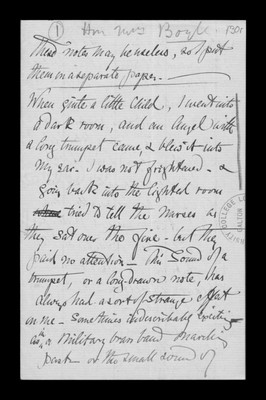 1 Hon Mrs Boyle
These notes may be useless, so I put
them in a separate paper.
When quite a little child, I went into
a dark room, and an Angel with
a long trumpet came, & blew it into
my ear. I was not frightened - &
going back into the lighted room
tried to tell the Nurses as
they sat over the fire - but they
paid no attention - This Sound of a
trumpet, or a long drawn note, has
always had a sort of strange effect
on me - Sometimes indescribably exciting
as a Military brass band marching
past - or the small sound of
COLLEGE
GALTON